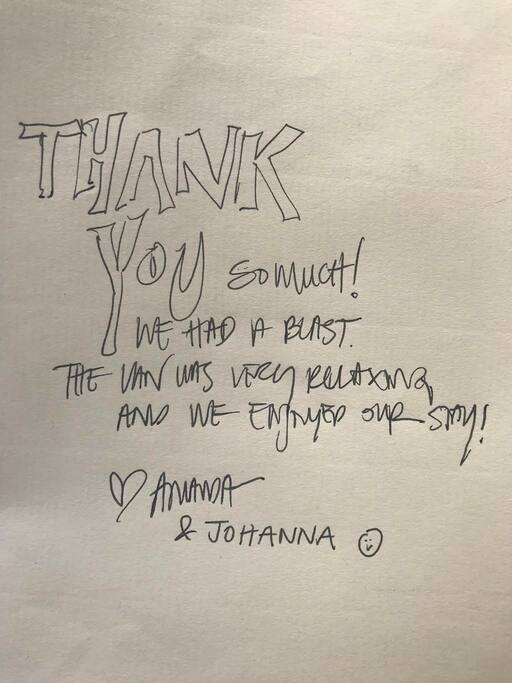 THANK
YOU SO MUCH!
WE HAD A BLAST.
THE VAN WAS VERY RELAXING,
AND WE ENJOYED OUR STAY!
♡ AMANDA
& JOHANNA ☺